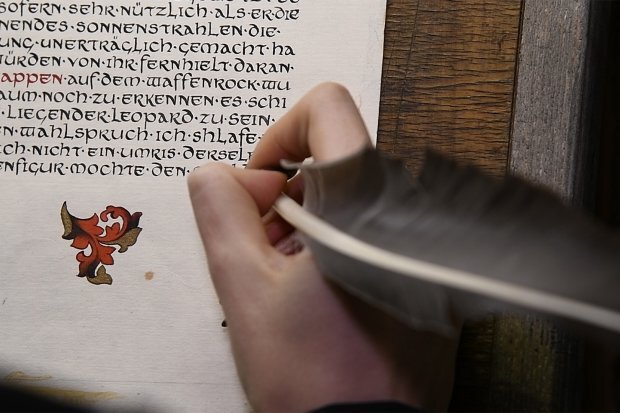 SOFERN·SEHR·NÜTZLICH·ALS·ER·DIE
NENDES·SONNENSTRAHLEN·DIE·
UNG·UNERTRÄGLICH·GEMACHT·HA
ÜRDEN·VON·IHR·FERNHIELT·DARAN·
APPEN·AUF·DEM·WAFFENROCK·WU
AUM·NOCH·ZU·ERKENNEN·ES·SCHI
·LIEGENDER·LEOPARD·ZU·SEIN·
EN·WAHLSPRUCH·ICH·SHLAFE·
CH·NICHT·EIN·UMRIS·DERSEL
ENFIGUR·MOCHTE·DEN·